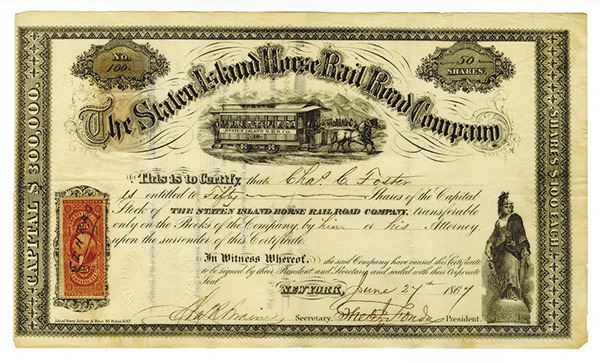 No.
100
50
SHARES.
The Staten Island Horse Rail Road Company
CAPITAL $300,000.
SHARES $100 EACH.
STATEN ISLAND H.R.R. CO.
This is to Certify that Chas. C. Foster
is entitled to Fifty Shares of the Capital
Stock of THE STATEN ISLAND HORSE RAIL ROAD COMPANY, transferable
only on the Books of the Company by him or his Attorney
upon the surrender of this Certificate.
In Witness Whereof, the said Company have caused this Certificate
to be signed by their President and Secretary and sealed with their Corporate
Seal.
NEW YORK, June 27th 1867
Secretary.
President.